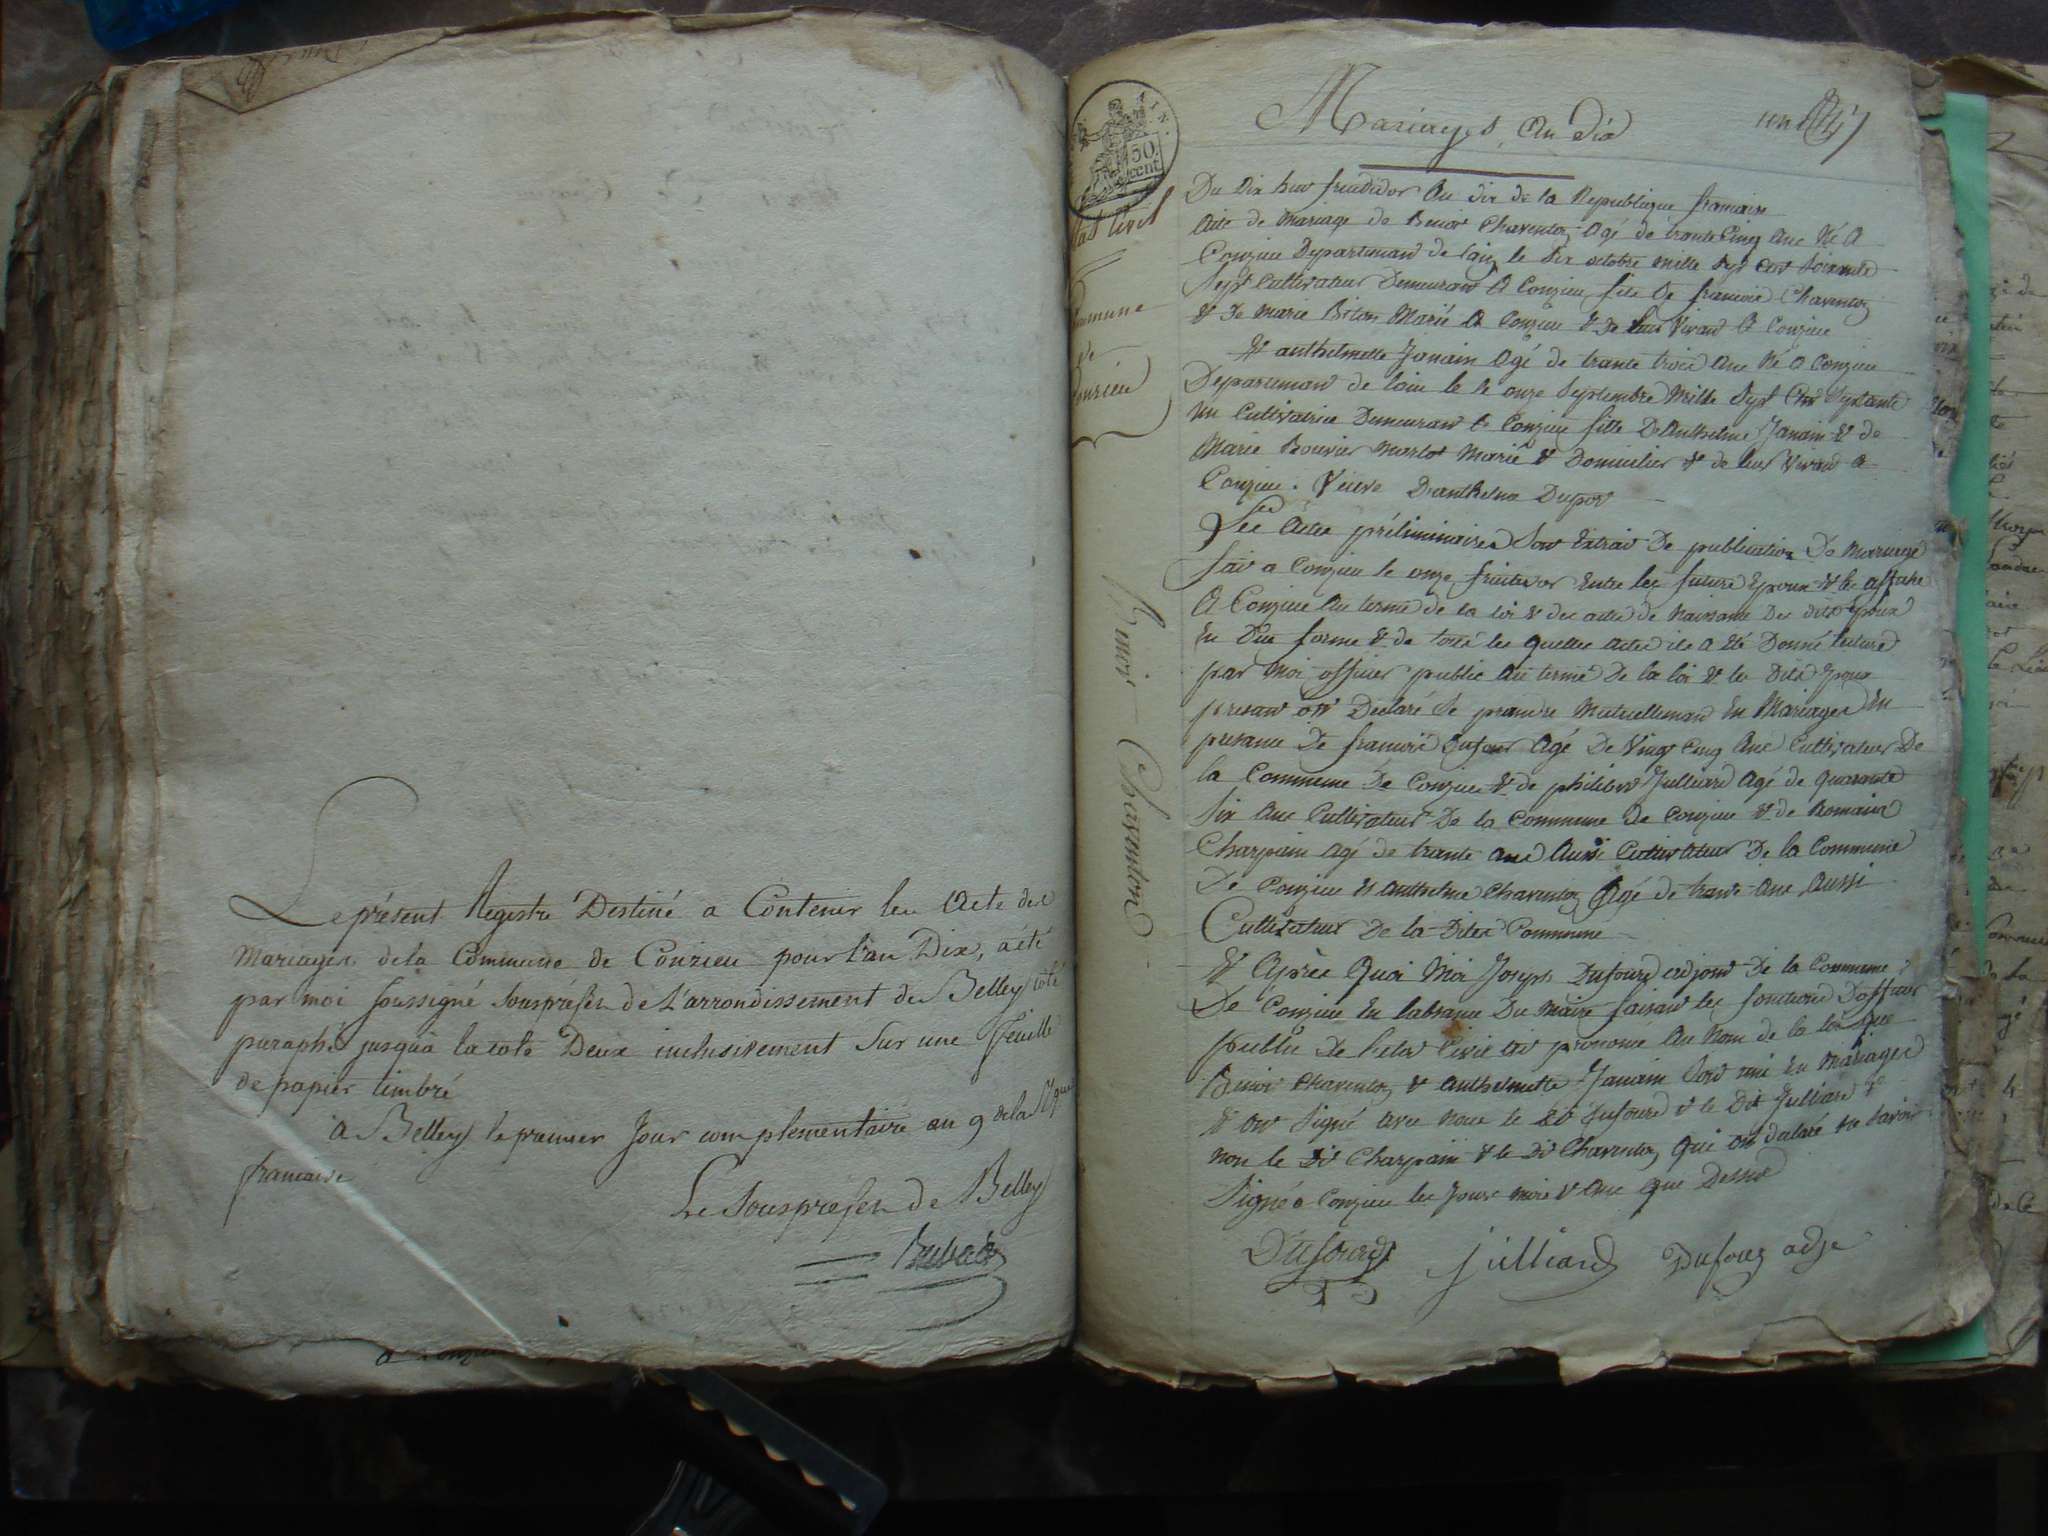 Le présent Registre Destiné a Contenir les Acte des
Mariages de la Commune de Conzieu pour l'an Dix, a été
par moi soussigné souspréfet de L'arrondissement de Belley coté
paraphé jusqu'a la cote Deux inclusivement sur une feuille
de papier timbré
a Belley le premier Jour complementaire an 9 de la
francaise
Le Souspréfet de Belley
AIN.
50
cent.
Etat Civil
Commune
de
Conzieu
Benoit Charveton
Mariages An dix
Du dix huit fructidor An dix de la Republique francaise
Acte de Mariage de Benoit Charveton Agé de trante Cinq Ans Né A
Conzieu Departemant de lain le six octobre mille sept cent soixante
Sept Cultivateur Demeurant A Conzieu fils De francois Charveton
& de Marie Biton Marié A Conzieu & de leur Vivant A Conzieu
Et anthelmette Janain Agé de trante trois Ans Né A Conzieu
Departemant de lain le onze Septembre Mille Sept Cent Septante
un Cultivatrice Demeurant A Conzieu fille D'Anthelme Janain & de
Marie Bouvier Marlot Marié & Domicilier & de leur Vivant A
Conzieu. Veuve D'anthelme Dupont
Les Actes préliminaires Sont Extrait De publication De Mariage
fait a Conzieu le onze fructidor Entre les futurs Epoux & le affiche
A Conzieu Au terme de la loi & des actes de Naissance Des dits Epoux
En Due forme & de tous les quelles actes il a Eté Donné lecture
par Moi officier public Au terme De la loi & les Dits Epoux
presant ont Declaré Se prandre Mutuellemant En Mariages En
presance De francois Dufour Agé De Vingt Cinq Ans Cultivateur De
la Commune De Conzieu & de philibert Julliard Agé de quarante
Six Ans Cultivateur De la Commune De Conzieu & de Romain
Charpain Agé de trante ans Aussi Cultivateur De la Commune
De Conzieu & Anthelme Charveton Agé de trante Ans Aussi
Cultivateur De la Dites Commune
Et Après Quoi Moi Joseph Dufours adjoint De la Commune
De Conzieu En labsance Du Maire faisant les fonctions D'officier
public De l'etat Civil ai prononcé Au Nom de la loi que
Benoit Charveton & Anthelmette Janain Sont uni En Mariages
& ont Signé avec nous le dit Dufours & le Dit Julliard &
non le Dit Charpain & le Dit Charveton Qui ont declaré ne Savoir
Signé a Conzieu les Jours mois & Ans que Dessus
Dufours Julliard Dufour adj